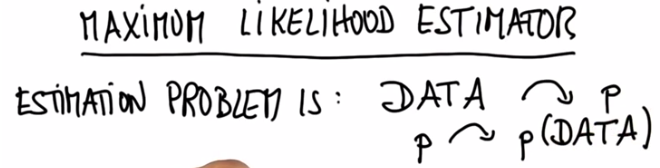 MAXIMUM LIKELIHOOD ESTIMATOR
ESTIMATION PROBLEM IS : DATA ↷ p
p ↷ p(DATA)